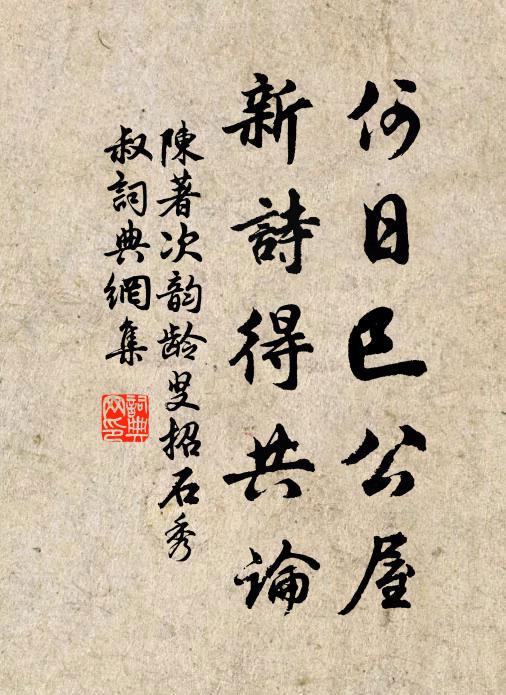 何日巳公屋
新詩得共論
陳著次韵龄叟招石秀
叔詞典網集
詞典网印